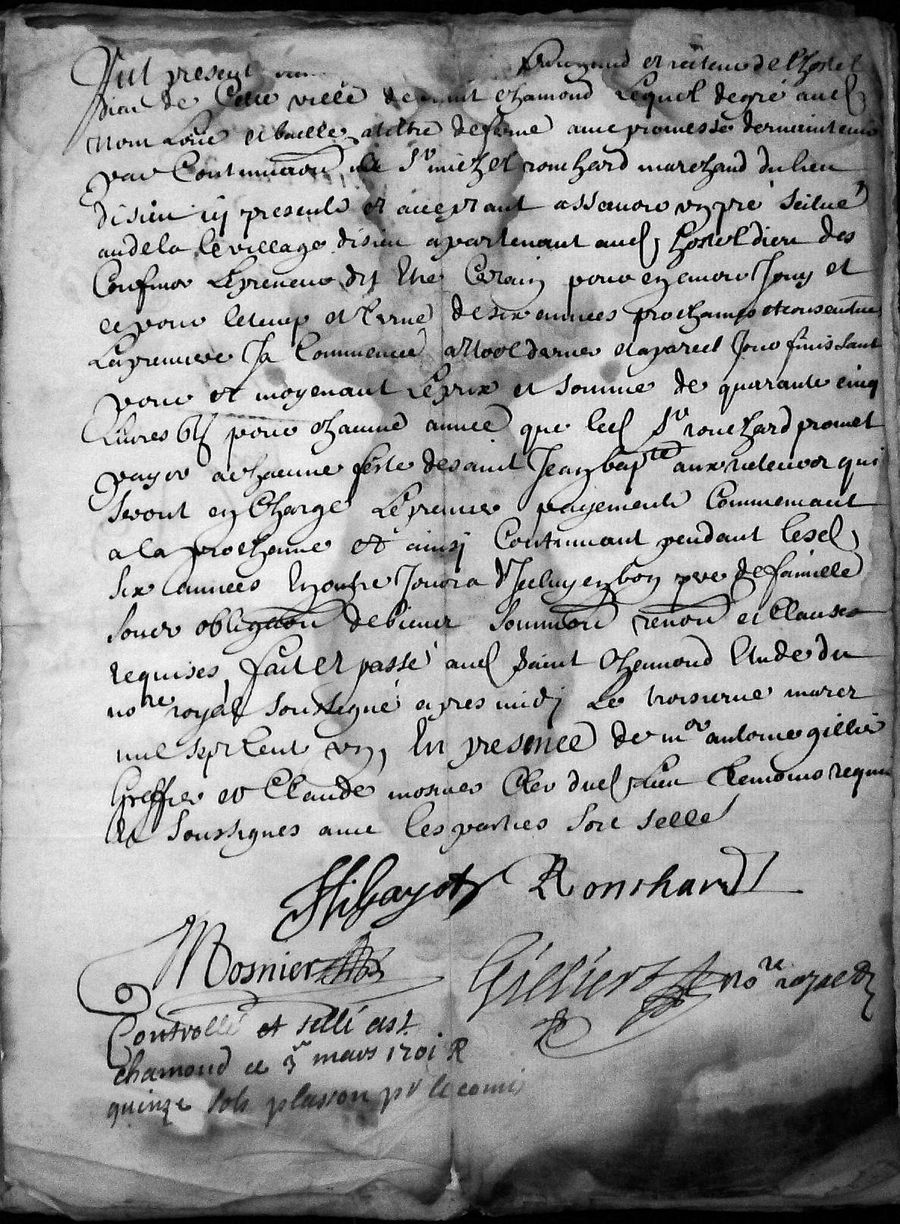 Fut present
dieu de Cette ville de saint chamond Lequel de gré aud
nom Loüe et baille a tiltre de ferme avec promesse de maintenir
par Continuation au Sr michel ronchard marchand du lieu
disieu icy present et acceptant assavoir un pré scitué
audela le village disieu apartenant aud hosteldieu des
Confins Le preneur dit Etre Cerain pour en avoir Jouy et
ce pour le temp et terme de six années prochaines et consecutives
La premiere Ja Commencé a Noel dernier et a pareil Jour finissant
pour et moyenant Le prix et somme de quarante cinq
Livres pour chacune année que led Sr ronchard promet
payer a chacune feste de saint Jean bapte aux recteurs qui
seront en Charge Le premier payement Commencant
a la prochaine et ainsi Continuant pendant lesd
six années En outre Jouira d'Iceluy en bon pere de famille
sous obligaon de biens soummon renon et Clauses
requises, fait et passé aud Saint Chamond Etude du
nore royal soussigné apres midi Le troisieme mars
mil sept Cent un, En presence de mre antoine gillier
Greffier et Claude mosnier Clerc dud lieu temoins requis
et soussignés avec les parties soit scellé
Thibayot Ronchard
Mosnier
Gillier nore royal
Controllé et scellé a st
chamond ce 3e mars 1701 R
quinze sols plasson pr le comis